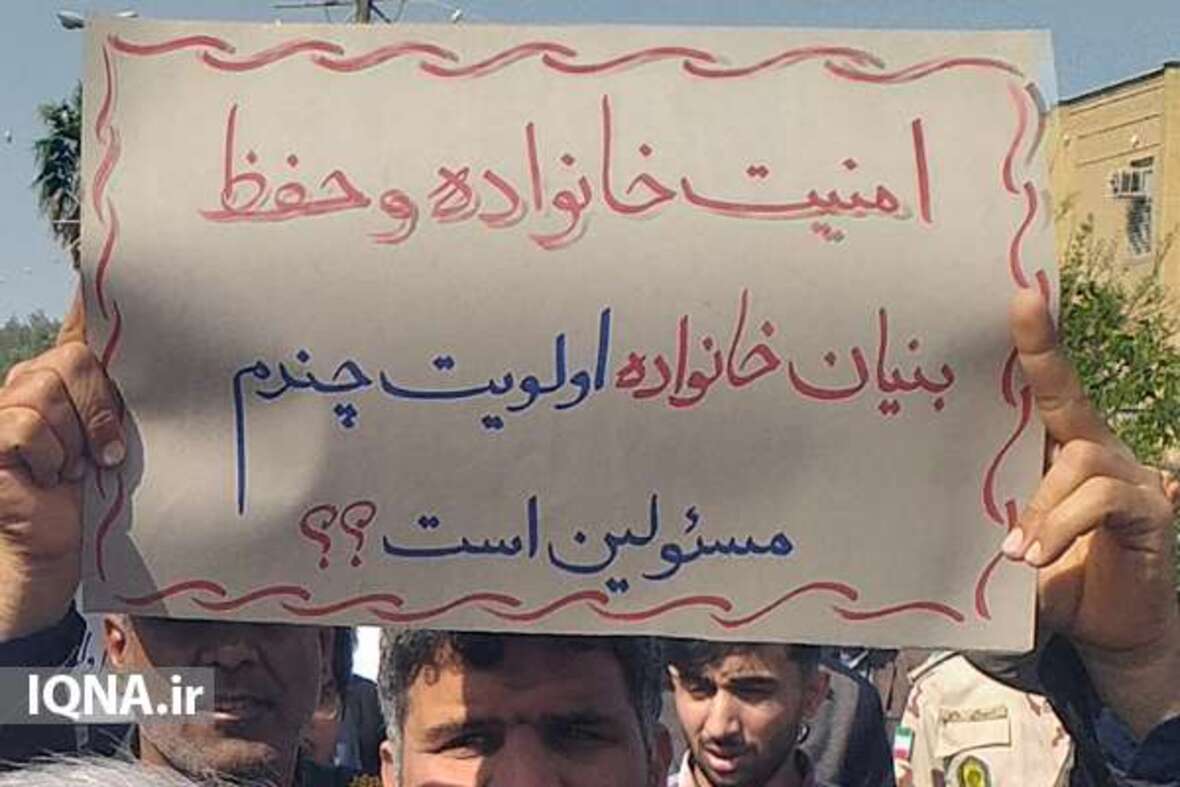 امنیت خانواده و حفظ
بنیان خانواده اولویت چندم
مسئولین است؟؟
IQNA.ir